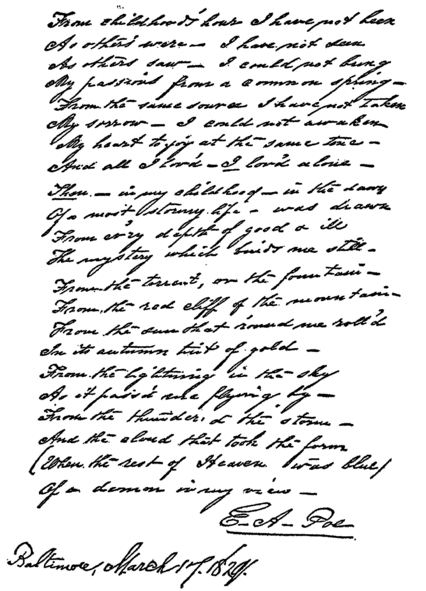 From childhood's hour I have not been
As others were — I have not seen
As others saw — I could not bring
My passions from a common spring —
From the same source I have not taken
My sorrow — I could not awaken
My heart to joy at the same tone —
And all I lov'd — I lov'd alone —
Then — in my childhood — in the dawn
Of a most stormy life — was drawn
From ev'ry depth of good & ill
The mystery which binds me still —
From the torrent, or the fountain —
From the red cliff of the mountain —
From the sun that 'round me roll'd
In its autumn tint of gold —
From the lightning in the sky
As it pass'd me flying by —
From the thunder, & the storm —
And the cloud that took the form
(When the rest of Heaven was blue)
Of a demon in my view —
E. A. Poe
Baltimore, March 17, 1829.